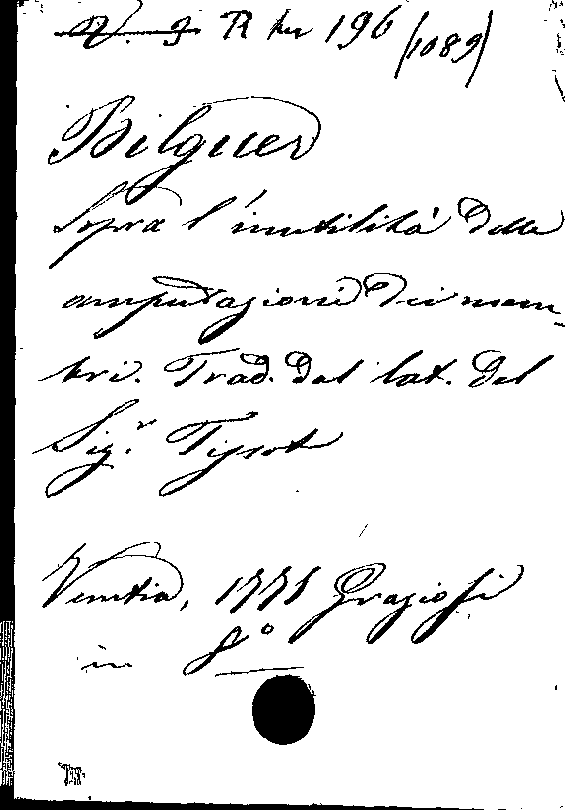 196 (1089)
Bilguer
Sopra l'inutilità delle
amputazioni dei mem-
bri. Trad. dal lat. del
Sig.r Tissot
Venetia, 1771 Graziosi
in 8º